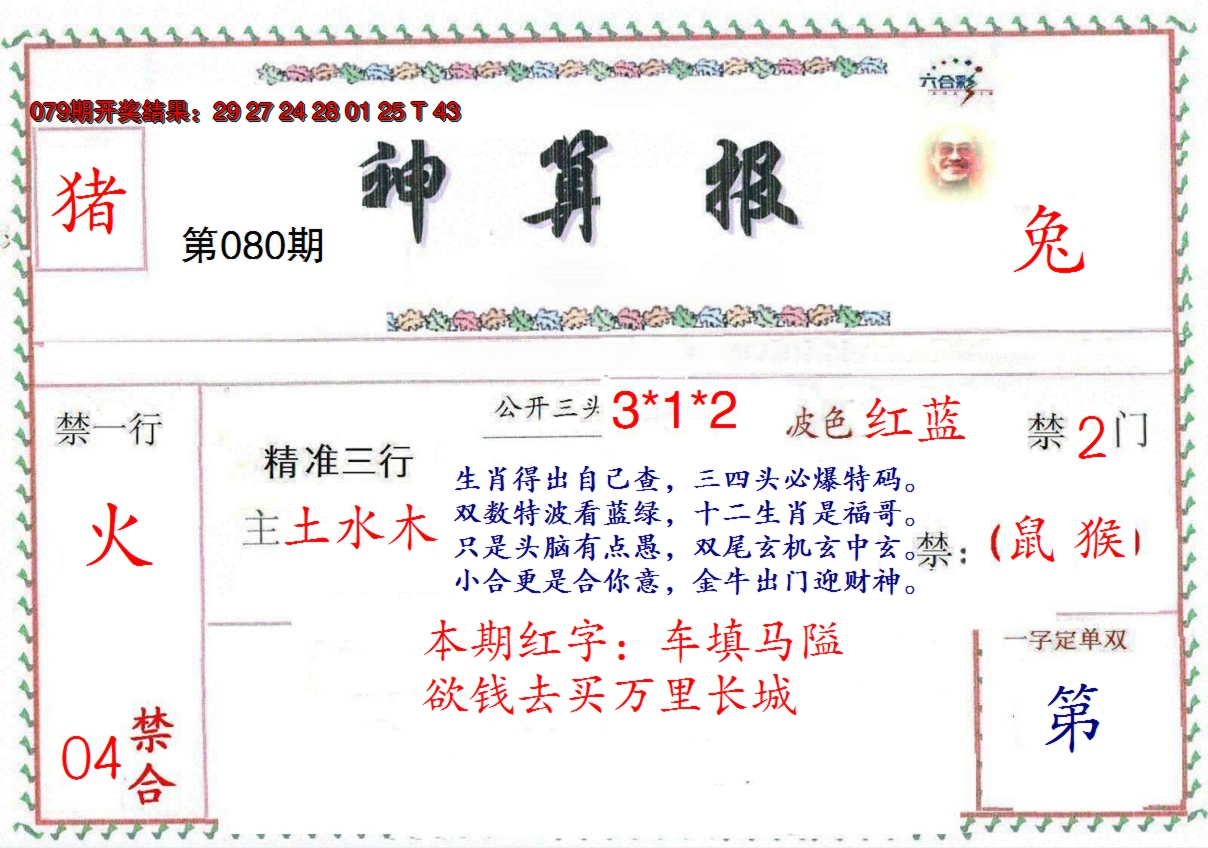 六合彩
079期开奖结果：29 27 24 28 01 25 T 43
神算报
猪
第080期
兔
禁一行
火
04
禁合
精准三行
主土水木
公开三头 3*1*2
波色 红蓝
禁2门
生肖得出自己查，三四头必爆特码。
双数特波看蓝绿，十二生肖是福哥。
只是头脑有点愚，双尾玄机玄中玄。
小合更是合你意，金牛出门迎财神。
禁：（鼠 猴）
本期红字：车填马隘
欲钱去买万里长城
一字定单双
第